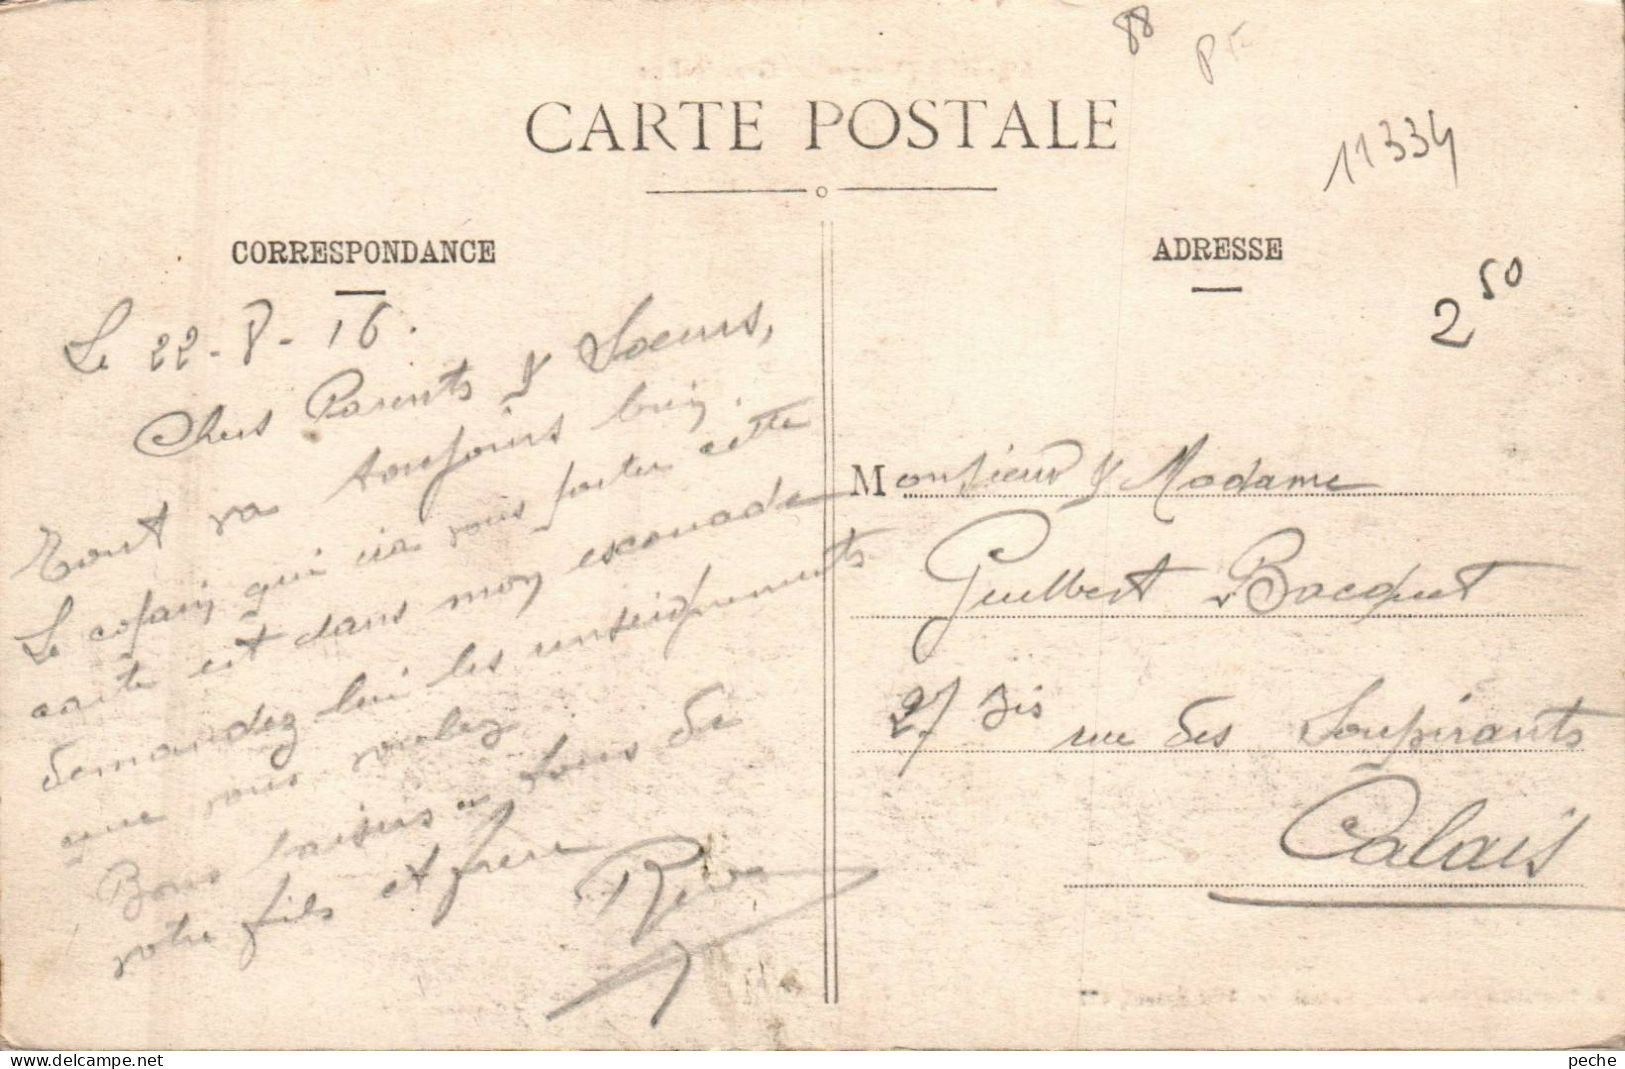 88
PF
CARTE POSTALE
11334
CORRESPONDANCE
ADRESSE
2 50
Le 22-8-16.
Chers Parents & Soeurs,
Tout va toujours bien.
Le copain qui ira vous porter cette
carte est dans mon escouade
demandez lui les renseignements
que vous voulez
Bons baisers à tous de
votre fils et frère
Monsieur & Madame
Guilbert Bacquet
27 Bis rue des Soupirants
Calais
peche